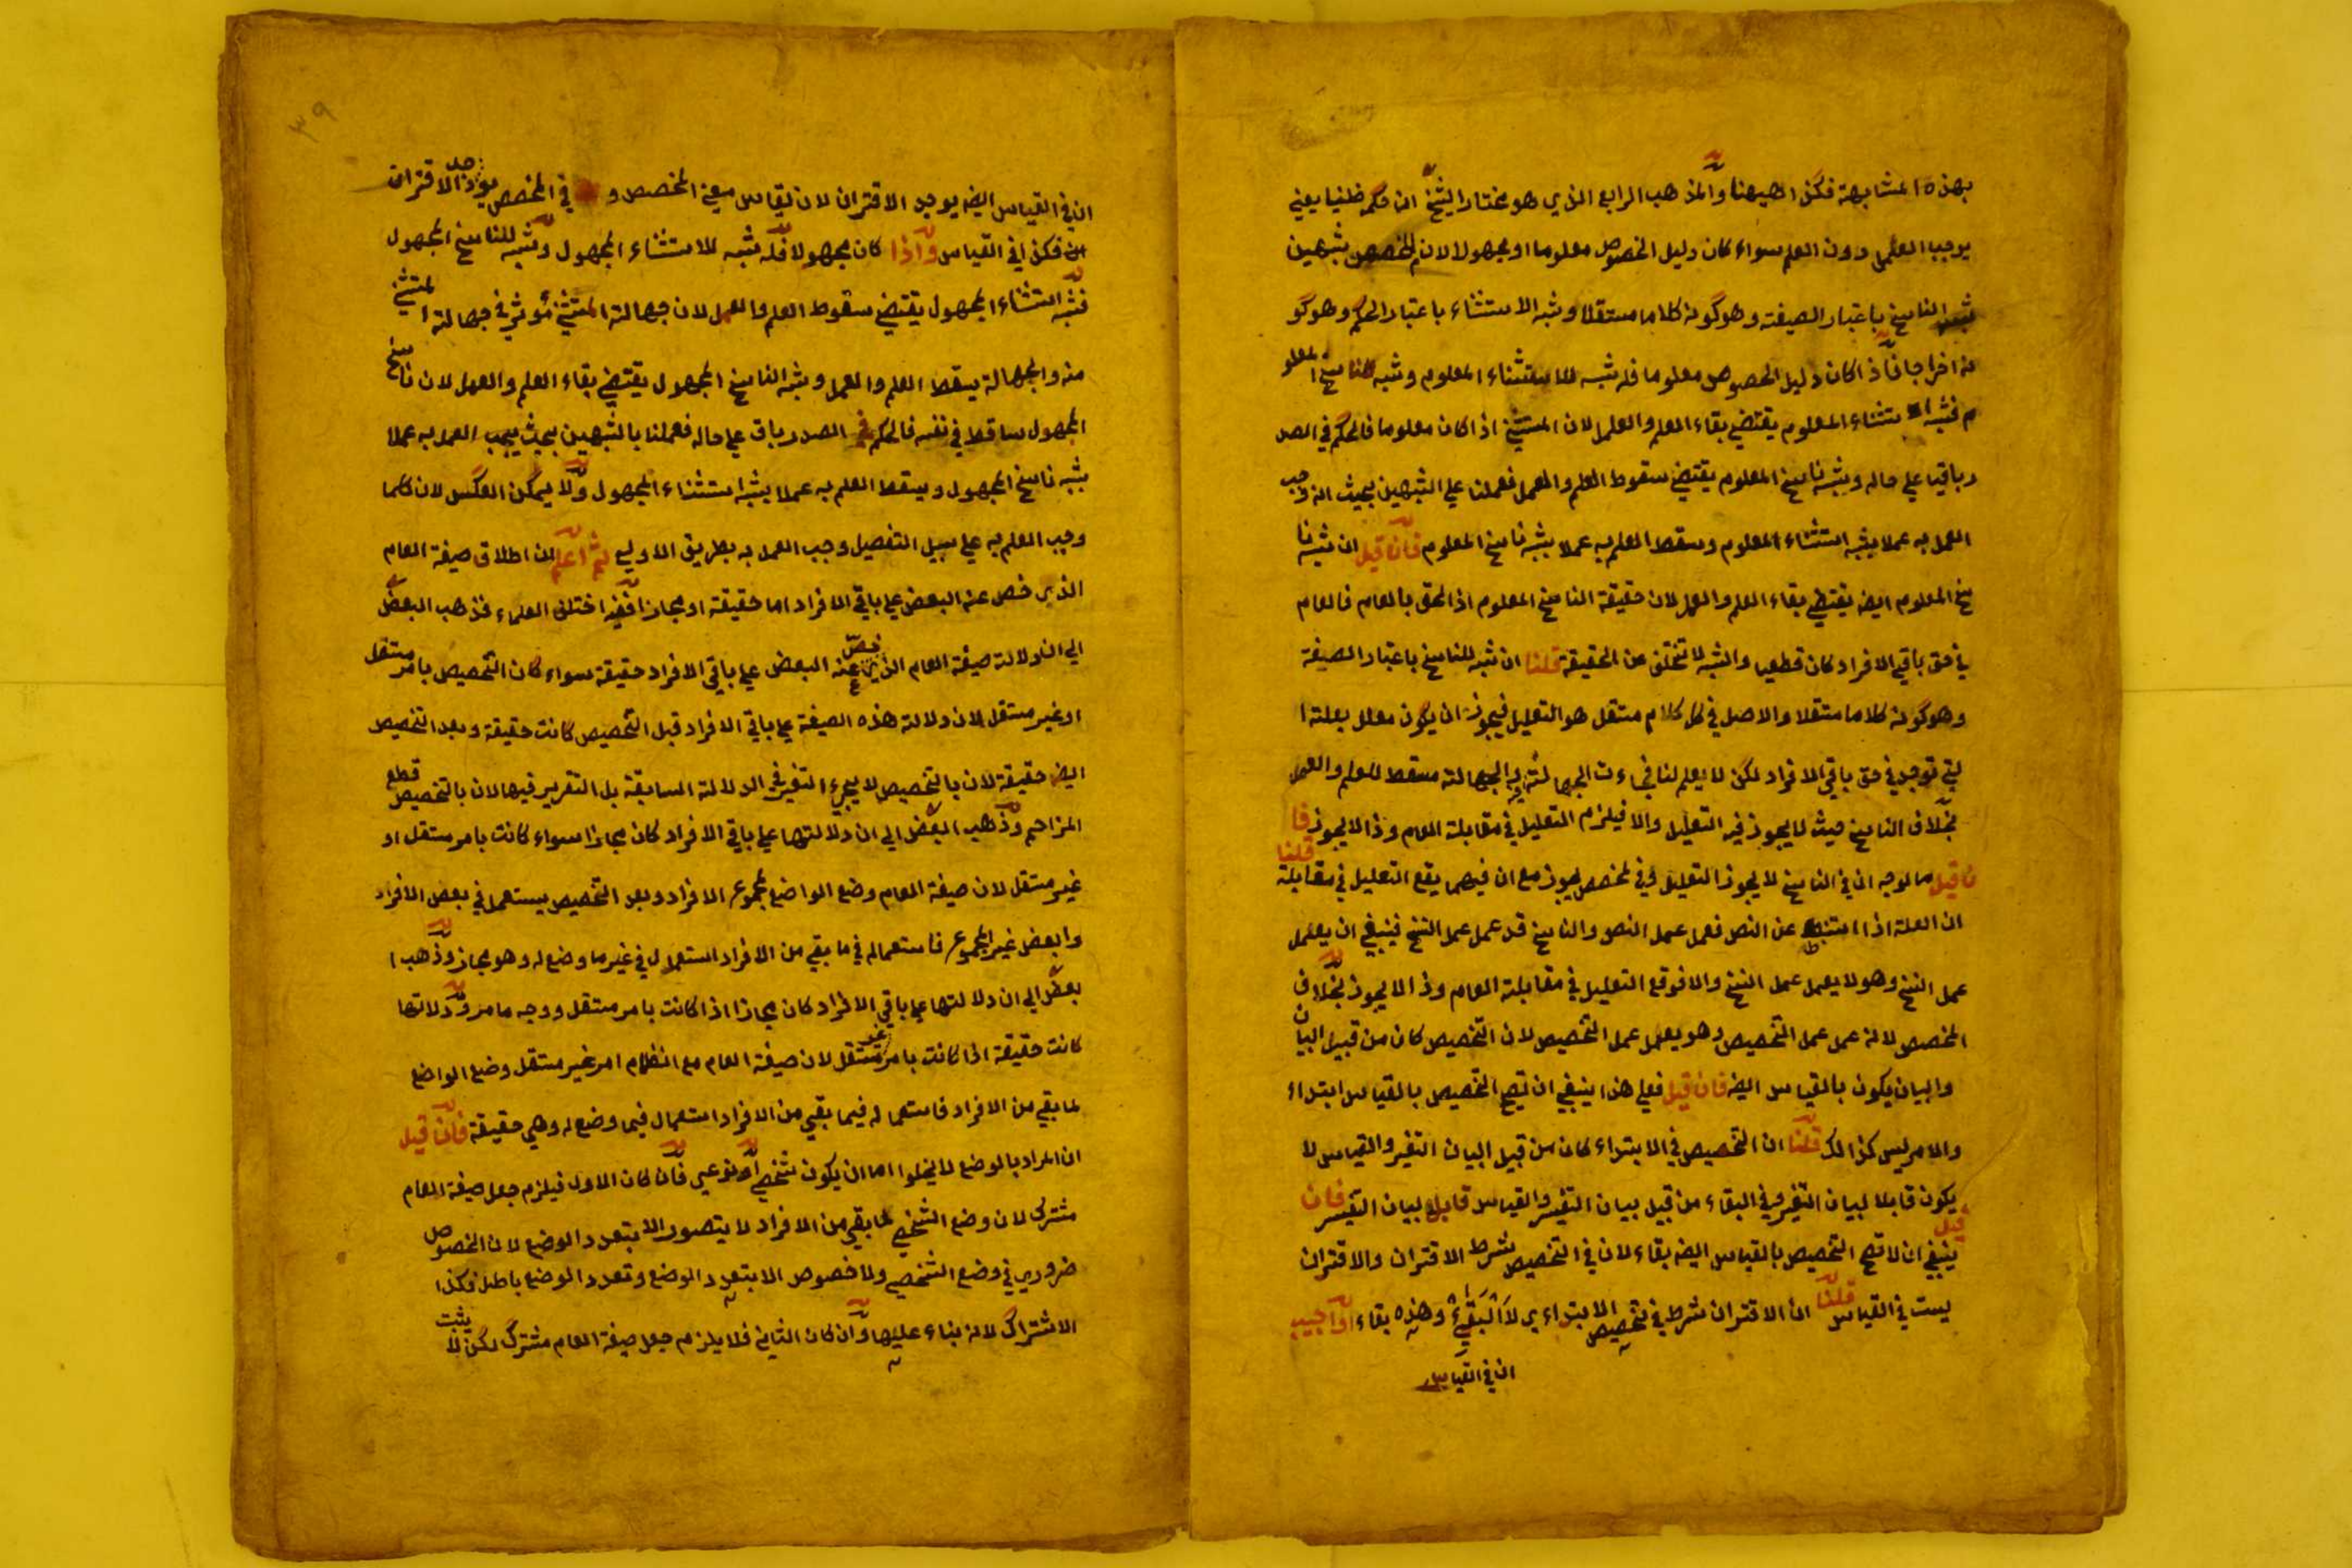 بهذه المشابهة فكذا ههنا والمذهب الرابع الذي هو مختار الشيخ ان حكمه ظنيا يعني
يوجب العمل دون العلم سواء كان دليل الخصوص معلوما او مجهولا لان للمخصص شبهين
شبه الناسخ باعتبار الصيغة وهو كونه كلاما مستقلا وشبه الاستثناء باعتبار الحكم وهو كو
نه اخراجا فاذا كان دليل الخصوص معلوما فله شبه للاستثناء المعلوم وشبه للناسخ المعلو
م فشبه استثناء المعلوم يقتضي بقاء العلم والعمل لان المستثني اذا كان معلوما فالحكم في الصد
ر باقيا علي حاله وشبه ناسخ المعلوم يقتضي سقوط العلم والعمل فعملنا علي الشبهين بحيث انه وجب
العمل به عملا بشبه استثناء المعلوم وسقط العلم به عملا بشبه ناسخ المعلوم فان قيل ان شبه نا
سخ المعلوم ايضه يقتضي بقاء العلم والعمل لان حقيقة الناسخ المعلوم اذا لحق بالعام فالعام
في حق باقي الافراد كان قطعيا والشبه لا تختلف عن الحقيقة قلنا ان شبه للناسخ باعتبار الصيغة
وهو كونه كلاما مستقلا والاصل في كل كلام مستقل هو التعليل فيجوز ان يكون معلل بعلة ا
لتي توجد في حق باقي الافراد لكن لا يعلم لنا فجاءت الجهالة فيه والجهالة مسقط للعلم والعمل
بخلاف الناسخ حيث لا يجوز فيه التعليل والا فيلزم التعليل في مقابلة العام وذا لا يجوز فا
ن قيل ما الوجه ان في الناسخ لا يجوز التعليل وفي المخصص يجوز مع ان فيهما يقع التعليل في مقابلة قلنا
ان العلة اذا استنبط عن النص فعمل عمل النص والناسخ قد عمل عمل النسخ فينبغي ان يعمل
عمل النسخ وهو لا يعمل عمل النسخ والا فوقع التعليل في مقابلة العام وذا لا يجوز بخلاف
المخصص لانه عمل عمل التخصيص وهو يعمل عمل التخصيص لان التخصيص كان من قبيل البيان
والبيان يكون بالقياس ايضه فان قيل فعلي هذا ينبغي ان يصح التخصيص بالقياس ابتداء
والامر ليس كذالك قلنا ان التخصيص في الابتداء كان من قبيل البيان التغير والقياس لا
يكون قابلا لبيان التغير وفي البقاء من قبيل بيان التفسير والقياس قابل لبيان التفسير فان قيل
ينبغي ان لا تصح التخصيص بالقياس ايضه بقاء لان في التخصيص شرط الاقتران والاقتران
ليست في القياس قلنا ان الاقتران شرط في تخصيص الابتداءي لا البقيء وهذه بقاء او اجيب
ان في القياس
٣٩
ان في القياس ايضه يوجد الاقتران لان القياس معني المخصص و في المخصص يوجد الاقتران
فكذا في القياس واذا كان مجهولا فله شبه للاستثناء المجهول وشبه للناسخ المجهول
فشبه استثناء المجهول يقتضي سقوط العلم والعمل لان جهالة المستثني مؤثر في جهالة المستثني
منه والجهالة يسقط العلم والعمل وشبه الناسخ المجهول يقتضي بقاء العلم والعمل لان ناسخ
المجهول ساقط في نفسه فالحكم في الصدر باق علي حاله فعملنا بالشبهين بحيث يجب العمل به عملا
بشبه ناسخ المجهول ويسقط العلم به عملا بشبه استثناء المجهول ولا يمكن العكس لان كلما
وجب العلم به علي سبيل التفصيل وجب العمل به بطريق الاولي ثم اعلم ان اطلاق صيغة العام
الذي خص عنه البعض علي باقي الافراد اما حقيقة او مجازا ففيه اختلف العلماء فذهب البعض
الي ان دلالت صيغة العام الذي خص عنه البعض علي باقي الافراد حقيقة سواء كان التخصيص بامر مستقل
او غير مستقل لان دلالة هذه الصيغة علي باقي الافراد قبل التخصيص كانت حقيقة وبعد التخصيص
ايضه حقيقة لان بالتخصيص لا يجيء التغير في الدلالة السابقة بل التقرير فيها لان بالتخصيص قطع
المزاحم وذهب البعض الي ان دلالتها علي باقي الافراد كان مجازا سواء كانت بامر مستقل او
غير مستقل لان صيغة العام وضع الواضع لمجموع الافراد وبعد التخصيص يستعمل في بعض الافراد
والبعض غير المجموع فاستعماله في ما بقي من الافراد استعمال في غير ما وضع له وهو مجاز وذهب ا
لبعض الي ان دلالتها علي باقي الافراد كان مجازا اذا كانت بامر مستقل ووجه ما مر ودلالتها
كانت حقيقة اذا كانت بامر غير مستقل لان صيغة العام مع انظمام امر غير مستقل وضع الواضع
لما بقي من الافراد فاستعماله فيما بقي من الافراد استعمال فيما وضع له وهي حقيقة فان قيل
ان المراد بالوضع لا يخلوا اما ان يكون شخصي او نوعي فان كان الاول فيلزم جعل صيغة العام
مشترك لان وضع الشخصي لما بقي من الافراد لا يتصور الا بتعدد الوضع لان الخصوص
ضروري في وضع الشخصي ولا خصوص الا بتعدد الوضع وتعدد الوضع باطل فكذا
الاشتراك لانه بناء عليها وان كان الثاني فلا يلزم جعل صيغة العام مشترك لكن لا يثبت